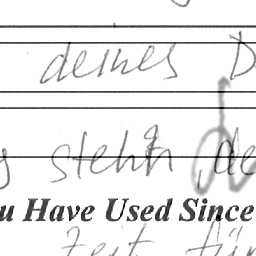 deines D
stehn, de
u Have Used Since
Zeit für